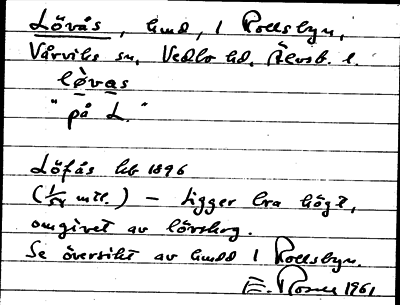 Lövås, hmd, 1 Rollsbyn,
Vårviks sn, Vedbo hd, Älvsb. l.
lo᷅vas
"på L."
Löfås hb 1896
(1/54 mtl.) – Ligger bra högt,
omgivet av lövskog.
Se översikt av hmdd 1 Rollsbyn.
E. Rosell 1961